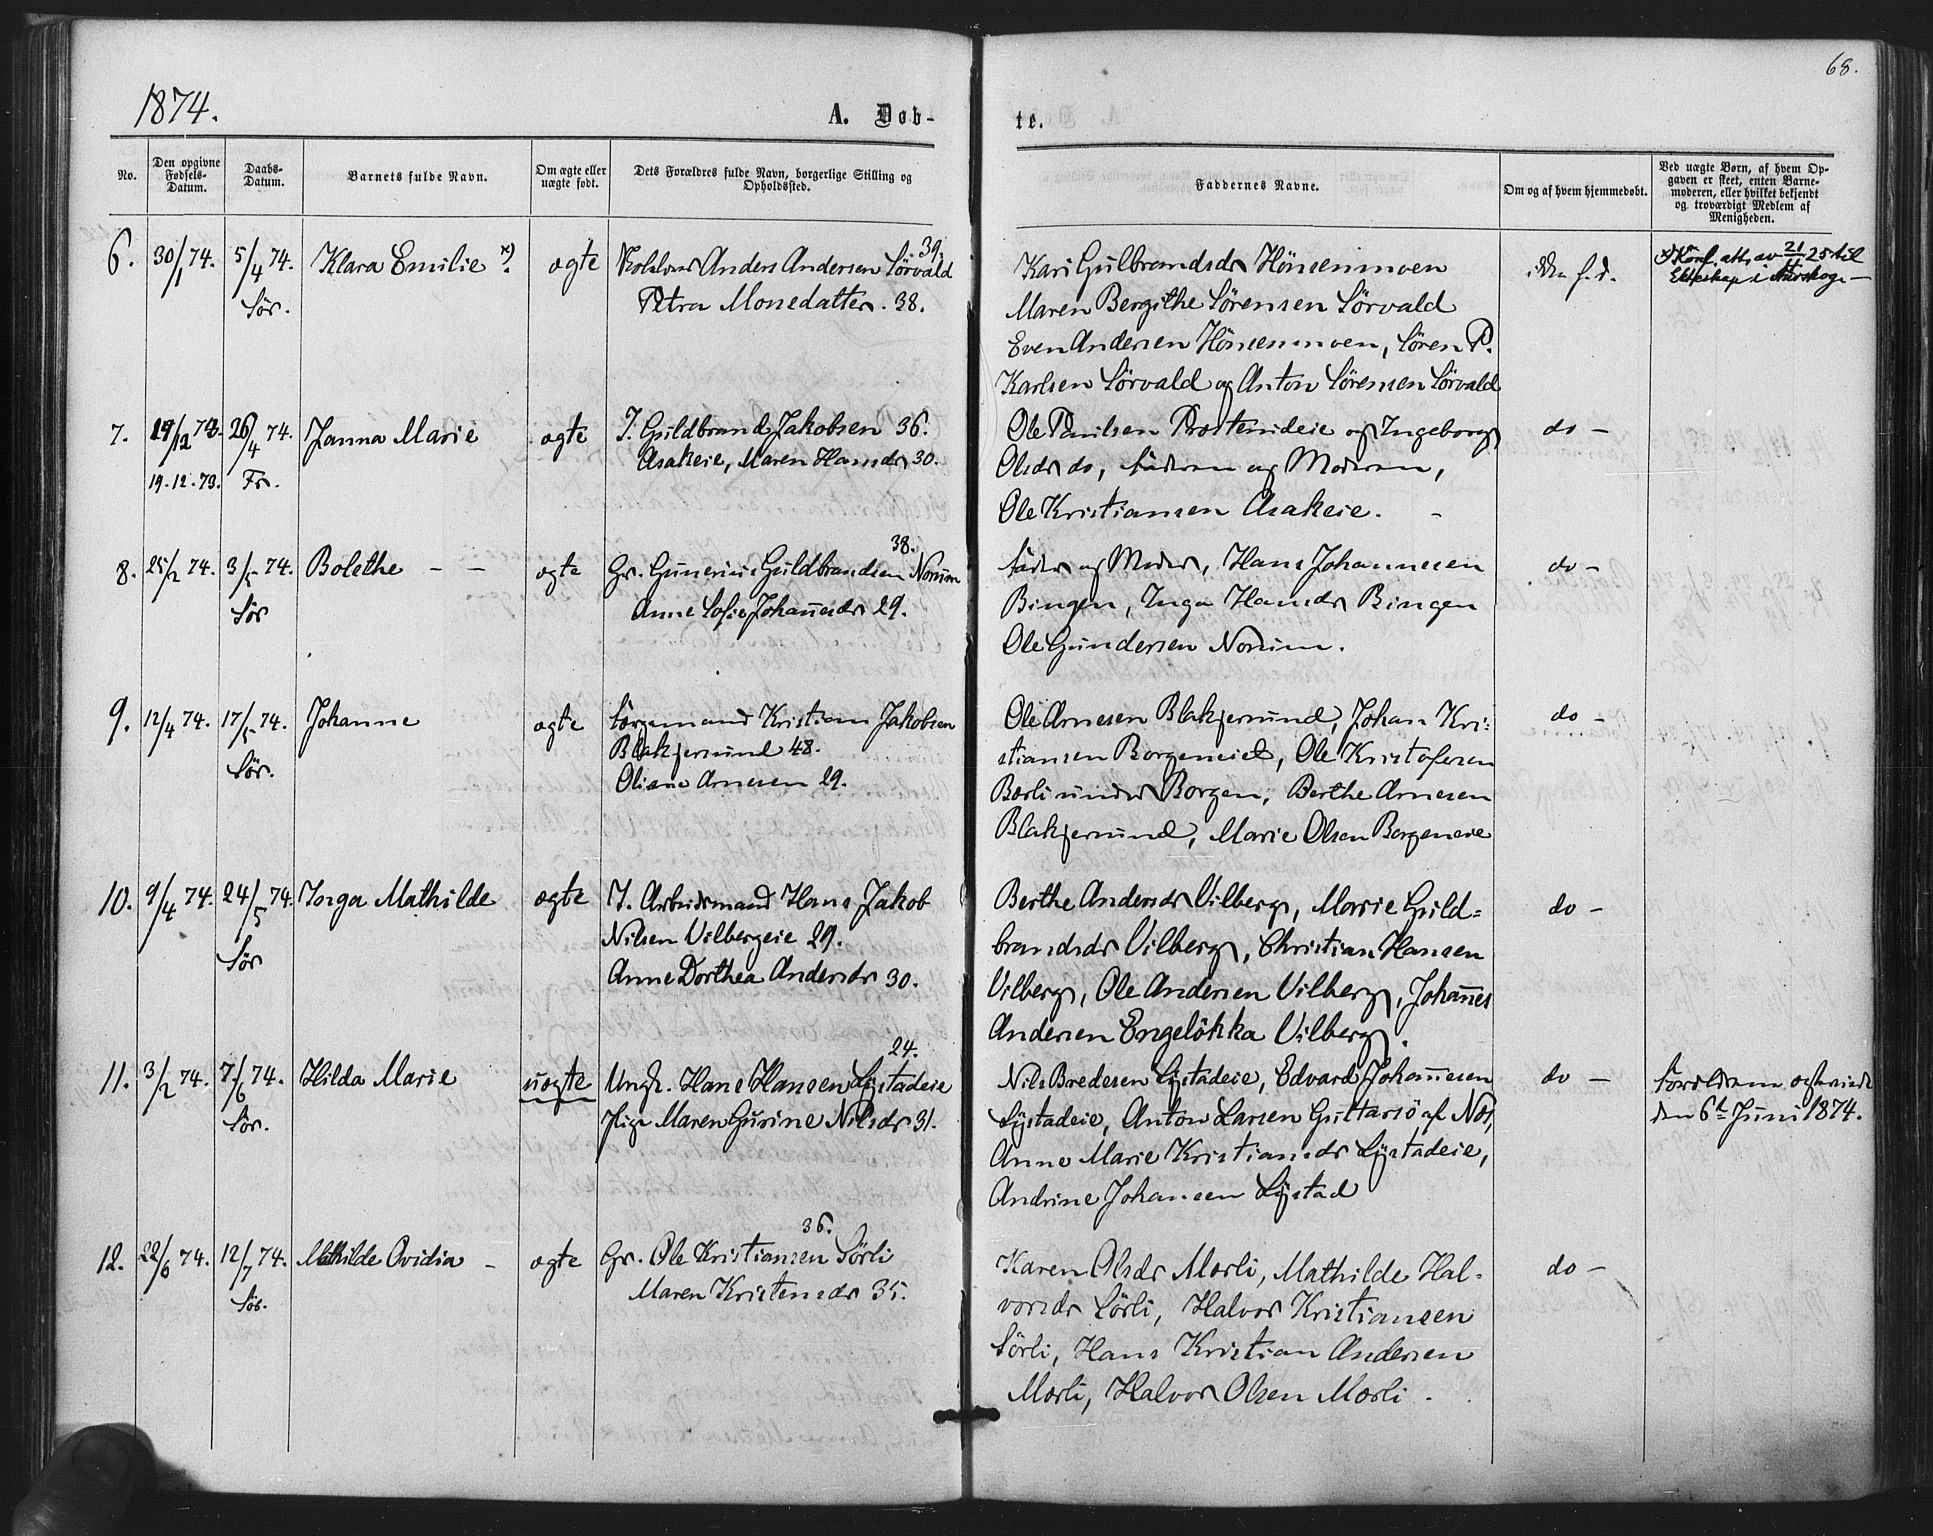 68.
1874.
A. Døb-
te.
No.
Den opgivne
Fødsels-
Datum.
Daabs-
Datum.
Barnets fulde Navn.
Om ægte eller
uægte født.
Dets Forældres fulde Navn, borgerlige Stilling og
Opholdssted.
Faddernes Navne.
Om og af hvem hjemmedøbt.
Ved uægte Børn, af hvem Op-
gaven er skeet, enten Barne-
moderen, eller hvilket bekjendt
og troværdigt Medlem af
Menigheden.
6. 30/1 74. 5/4 74. Klara Emilie x) ægte Anders Andersen Sörvald 39.
Sör. Petra Monsdatter. 38.
Kari Gulbrandsdr Hönsenmoen
Maren Bergithe Sörensen Sörvald
Even Andersen Hönsenmoen, Sören P.
Karlsen Sörvald og Anton Sörensen Sörvald
x) Konf. att. av 21/4 25 til
Ekteskap i Aurskog. —
7. 19/12 73. 26/4 74. Janna Marie ægte I. Guldbrand Jakobsen 36.
19.12.73. Fr. Asakeie, Maren Hansdr 30.
Ole Paulsen Præstenseie og Ingeborg
Olsdr do, Faderen og Moderen,
Ole Kristiansen Asakeie. -
do -
8. 25/2 74. 3/5 74. Bolethe - - ægte Gr. Gunerius Guldbrandsen Norum 38.
Sör Anne Sofie Johannesdr 29.
Fader og Moder, Hans Johannesen
Bingen, Inga Hansdr Bingen
Ole Gundersen Norum.
do -
9. 12/4 74. 17/5 74. Johanne ægte Sorgemand Kristian Jakobsen
Sör. Blakjerund 48.
Oliane Arnesen 29.
Ole Arnesen Blakjerund, Johan Kri-
stiansen Borgeneie, Ole Kristofersen
Bærli under Borgen, Berthe Arnesen
Blakjerund, Marie Olsen Borgeneie
do -
10. 9/4 74. 24/5 74. Inga Mathilde ægte I. Arbeidsmand Hans Jakob
Sör Nilsen Vilbergeie 29.
Anne Dorthea Andersdr 30.
Berthe Andersdr Vilberg, Marie Guld=
brandsdr Vilberg, Christian Hansen
Vilberg, Ole Andersen Vilberg, Johannes
Andersen Engelökka Vilberg.
do -
11. 3/2 74. 7/6 74. Hilda Marie uægte Ungk. Hans Hansen Lystadeie 24.
Sör. Pige Maren Gurine Nilsdr 31.
Nils Bredesen Lystadeie, Edvard Johannesen
Lystadeie, Anton Larsen Guttersö af Næs,
Anne Marie Kristiansdr Lystadeie,
Andrine Johansen Lystad
do -
Forældrene ægteviede
den 6te Juni 1874.
12. 22/6 74. 12/7 74. Mathilde Ovidia - ægte Gr. Ole Kristiansen Sörli 36.
Sör. Maren Kristensdr 35.
Karen Olsdr Mærli, Mathilde Hal-
vorsdr Sörli, Halvor Kristiansen
Sörli, Hans Kristian Andersen
Mærli, Halvor Olsen Mærli.
do -